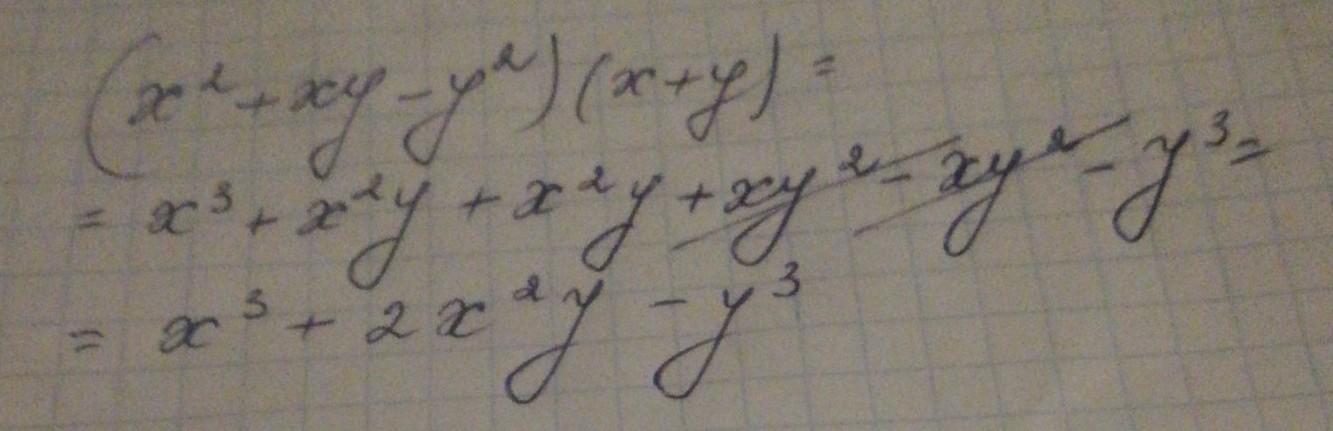 (x²+xy-y²)(x+y)=
= x³+x²y+x²y+xy²-xy²-y³=
= x³+2x²y-y³